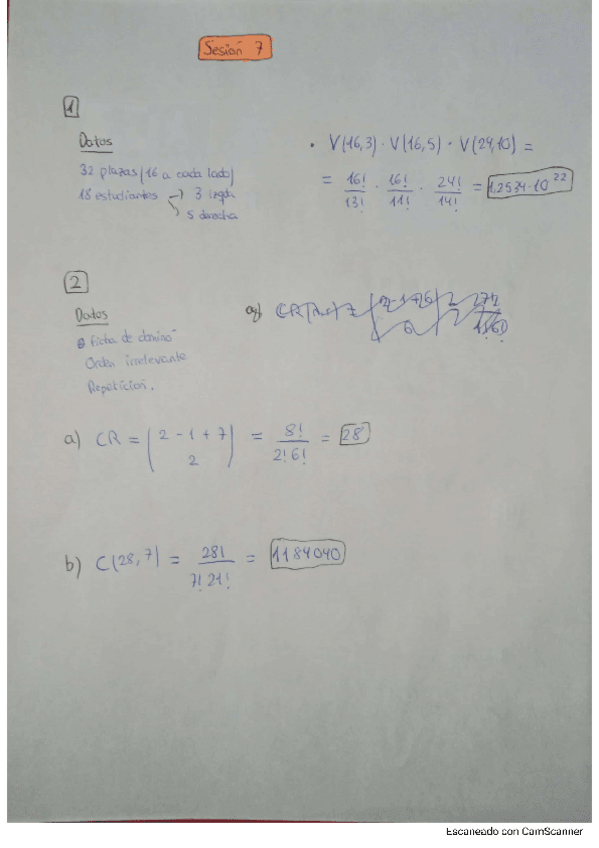 Sesión 7
1
Datos
32 plazas (16 a cada lado)
18 estudiantes → 3 izqda
↘ 5 derecha
• V(16,3) · V(16,5) · V(24,10) =
= 16!/13! · 16!/11! · 24!/14! = 1,2534·10^22
2
Datos
ficha de dominó
Orden irrelevante
Repetición.
a) CR = (2-1+7 / 2) = 8!/2!6! = 28
b) C(28,7) = 28!/7!21! = 1184040
Escaneado con CamScanner